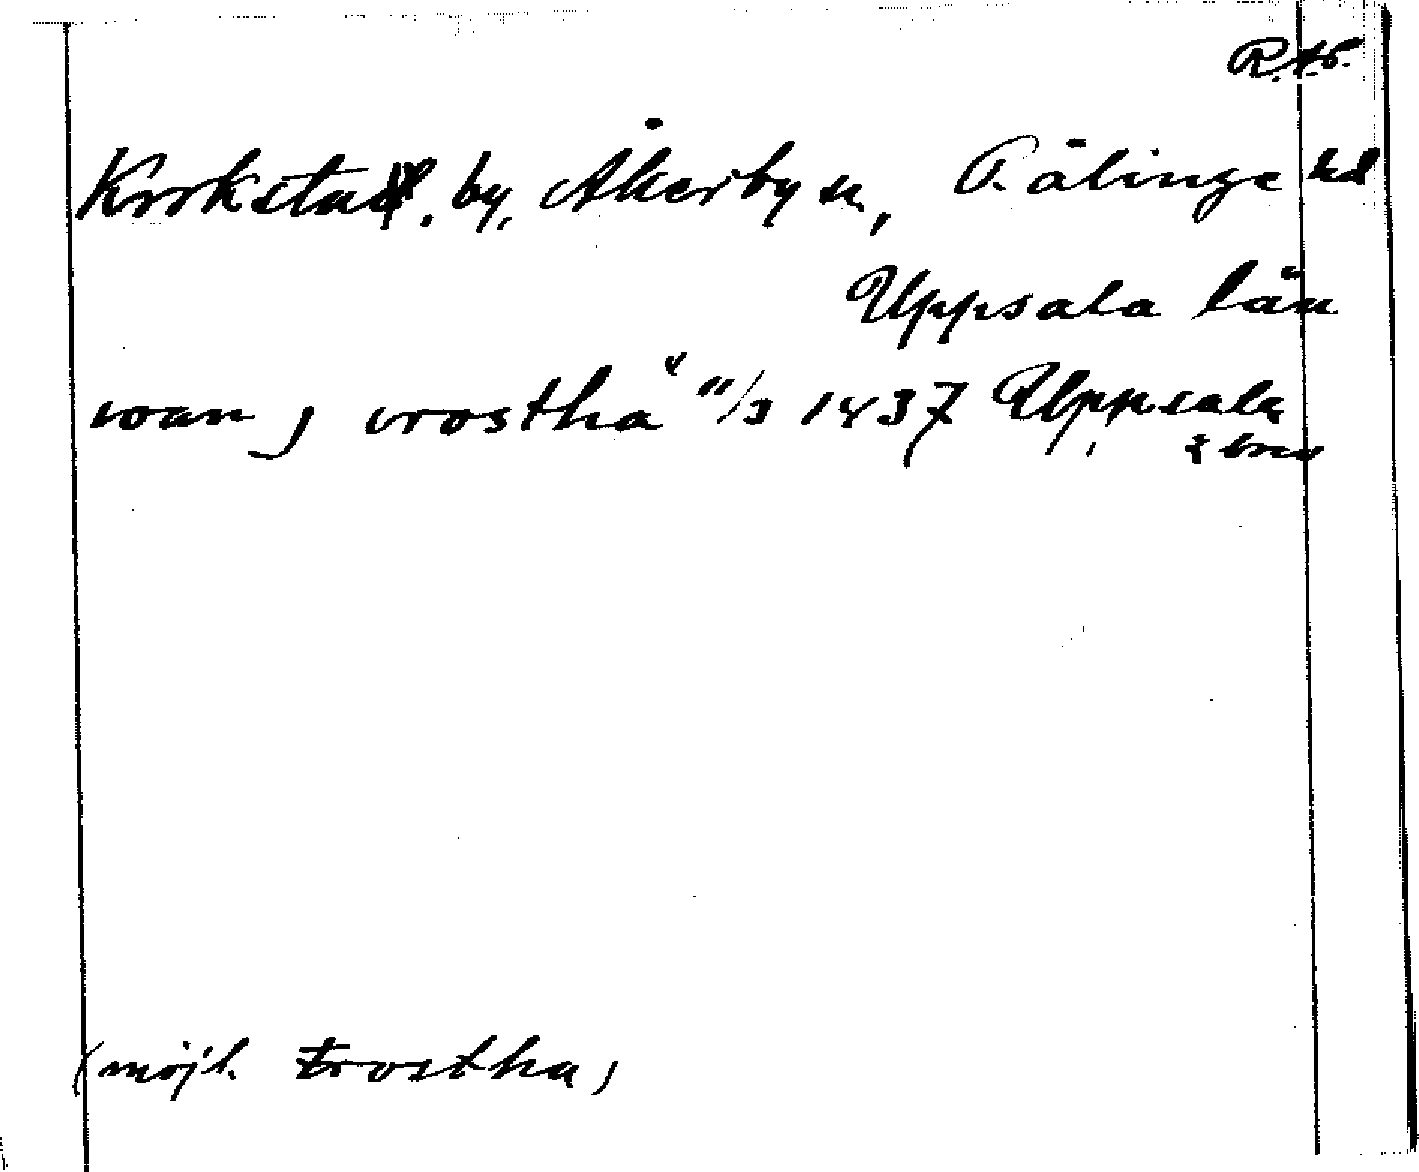 R.A.
Krokstad, by, Åkerby sn, Bälinge hd
Uppsala län
woan j vrostha 11/3 1437 Uppsala
brev
(möjl. trostha)